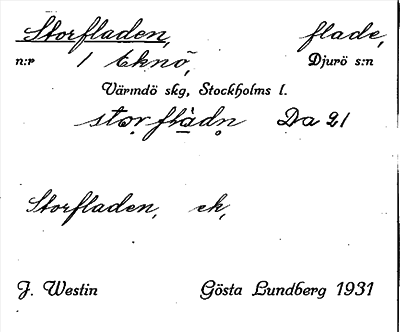 Storfladen, flade,
n:r 1 Eknö, Djurö s:n
Värmdö skg, Stockholms l.
Da 21
Storfladen, ek,
J. Westin Gösta Lundberg 1931